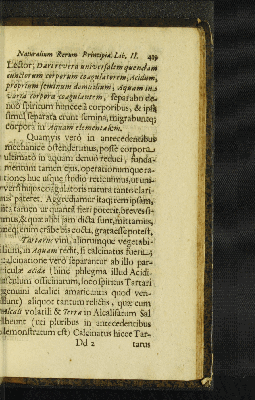 Naturalium Rerum Principia, Lib. II. 419
Lector; Dari revera universalem quendam
cunctorum corporum coagulatorem, Acidum,
proprium seminum domicilium; Aquam in
varia corpora coagulantem, separabo de-
nuo spiritum huncce à corporibus, & ipsi
simul separata erunt semina, migrabuntq;
corpora in Aquam elementalem.
Quamvis verò in antecedentibus
mechanicè ostenderimus, posse corpora
ultimatò in aquam denuò reduci, funda-
mentum tamen ejus, operationumque ra-
tiones huc usque studiò reticuimus, ut uni-
versi hujus coagulatoris natura tantò clari-
us pateret. Aggrediamur itaq; rem ipsam,
ita tamen ut quantâ fieri poterit, brevi si-
mus, & quæ alibi jam dicta sunt, mittamus,
necq; enim crābe bis cocta, grata esse potest,
Tartarus vini, aliorumque vegetabi-
lium, in Aquam redit, si calcinatus fuerit
calcinatione verò separantur ab illo par-
ticulæ acidæ (hinc phlegma illud Acidi-
officinarum, loco spiritus Tartari
genuini alcalici amaricantis quod ven-
dunt) aliquot tantum relictis, quæ cum
Alcali volatili & Terra in Alcalisatum Sal
abeunt (uti pluribus in antecedentibus
demonstratum est) Calcinatus hicce Tar-
Dd 2 tarus